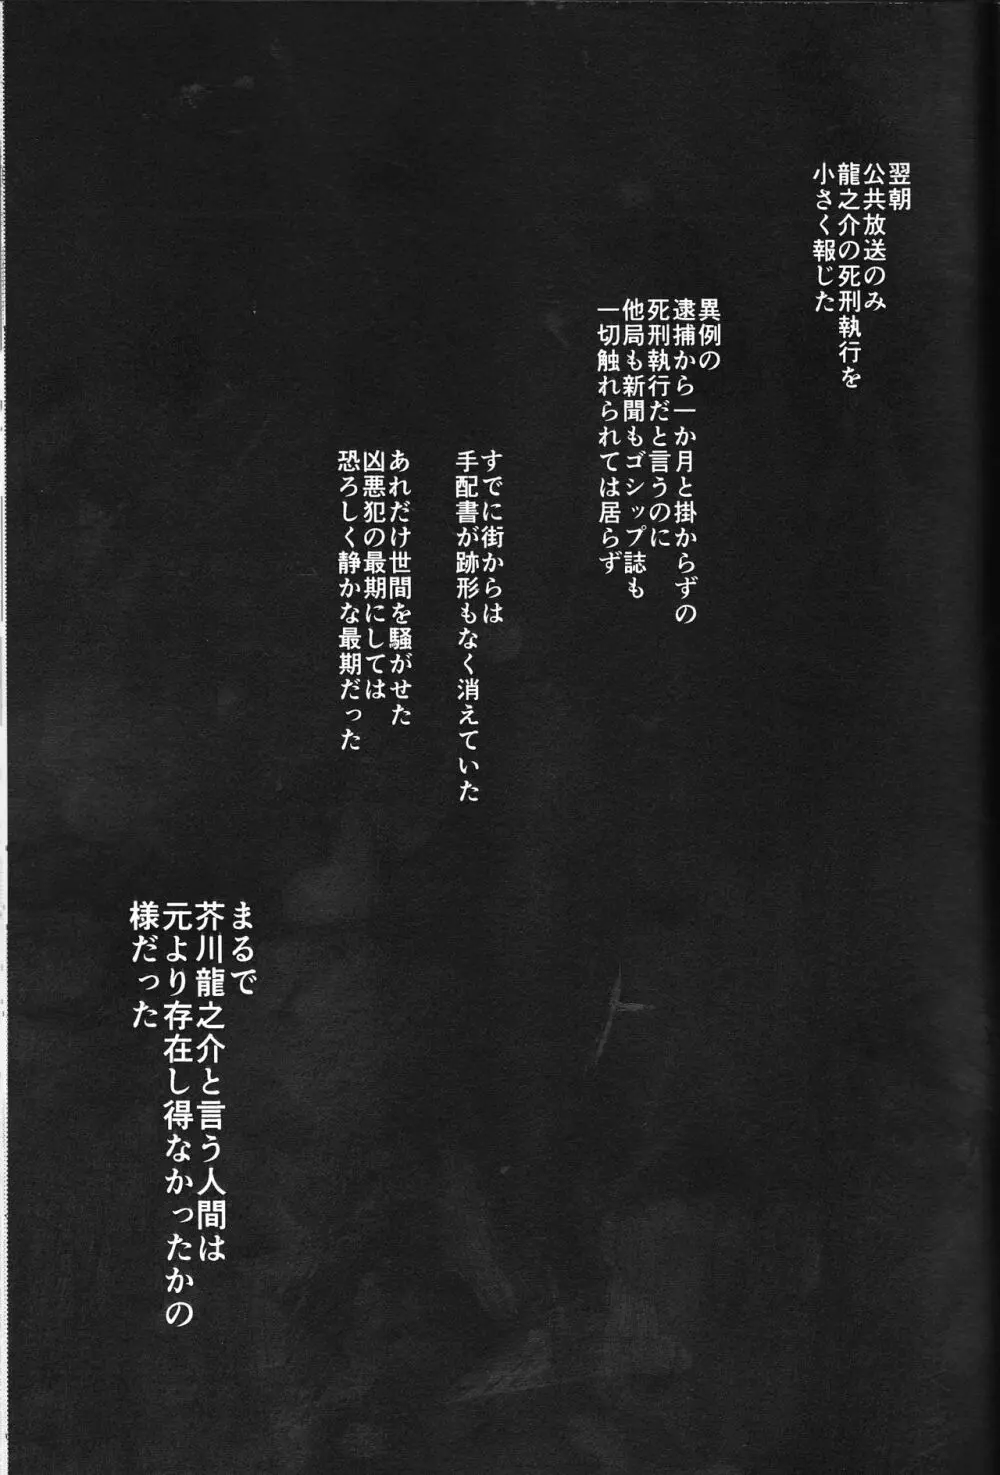 翌朝
公共放送のみ
龍之介の死刑執行を
小さく報じた
異例の
逮捕から一か月と掛からずの
死刑執行だと言うのに
他局も新聞もゴシップ誌も
一切触れられては居らず
すでに街からは
手配書が跡形もなく消えていた
あれだけ世間を騒がせた
凶悪犯の最期にしては
恐ろしく静かな最期だった
まるで
芥川龍之介と言う人間は
元より存在し得なかったかの
様だった